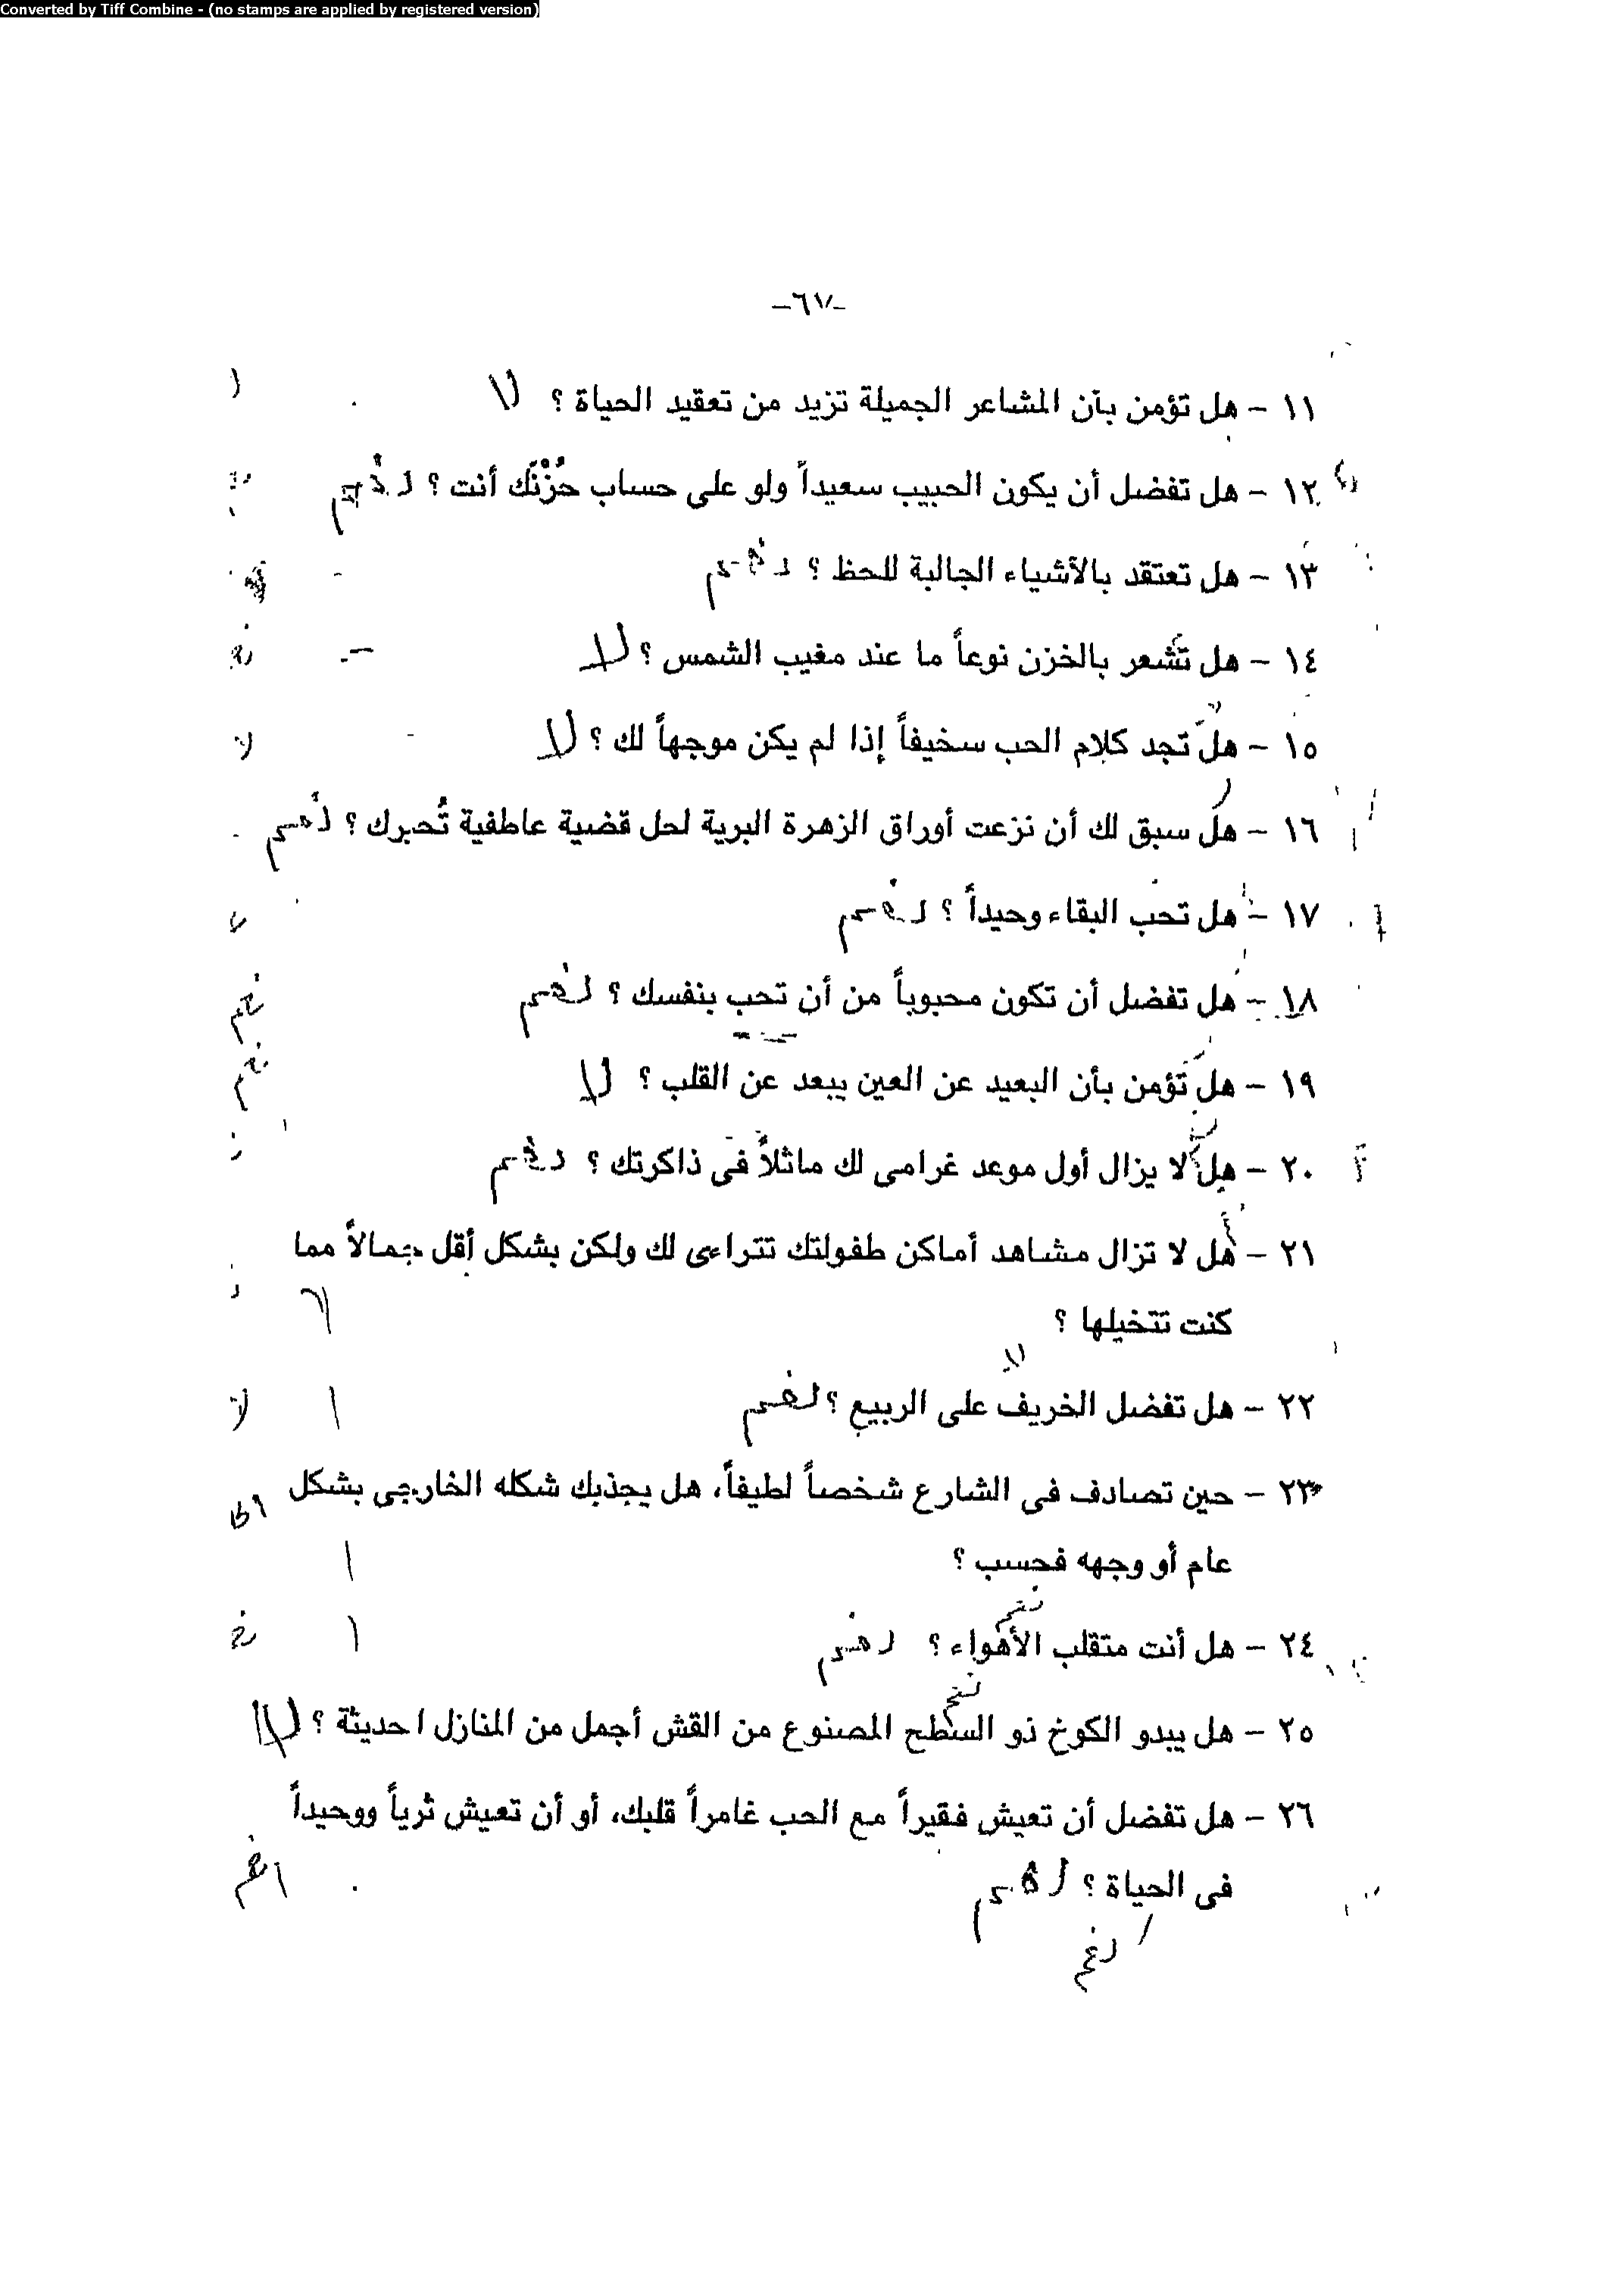 Converted by Tiff Combine - (no stamps are applied by registered version)
-٦٧-
١١ - هل تؤمن بأن المشاعر الجميلة تزيد من تعقيد الحياة ؟ لا
١٢ - هل تفضل أن يكون الحبيب سعيداً ولو على حساب حُزْنك أنت ؟ نعم
١٣ - هل تعتقد بالأشياء الجالبة للحظ ؟ نعم
١٤ - هل تشعر بالخزن نوعاً ما عند مغيب الشمس ؟ لا
١٥ - هل تجد كلام الحب سخيفاً إذا لم يكن موجهاً لك ؟ لا لا
١٦ - هل سبق لك أن نزعت أوراق الزهرة البرية لحل قضية عاطفية تُحبرك ؟ نعم
١٧ - هل تحب البقاء وحيداً ؟ نعم
١٨ - هل تفضل أن تكون محبوباً من أن تحب بنفسك ؟ نعم نعم
١٩ - هل تؤمن بأن البعيد عن العين يبعد عن القلب ؟ لا نعم
٢٠ - هل لا يزال أول موعد غرامى لك ماثلاً فى ذاكرتك ؟ نعم
٢١ - هل لا تزال مشاهد أماكن طفولتك تتراءى لك ولكن بشكل أقل جمالاً مما
كنت تتخيلها ؟
لا
٢٢ - هل تفضل الخريف على الربيع ؟ نعم لا
٢٣ - حين تصادف فى الشارع شخصاً لطيفاً، هل يجذبك شكله الخارجى بشكل
عام أو وجهه فحسب ؟
نعم
٢٤ - هل أنت متقلب الأهواء ؟ نعم
نعم
٢٥ - هل يبدو الكوخ ذو السطح المصنوع من القش أجمل من المنازل احديثة ؟ لا
٢٦ - هل تفضل أن تعيش فقيراً مع الحب غامراً قلبك، أو أن تعيش ثرياً ووحيداً
فى الحياة ؟ نعم نعم
نعم